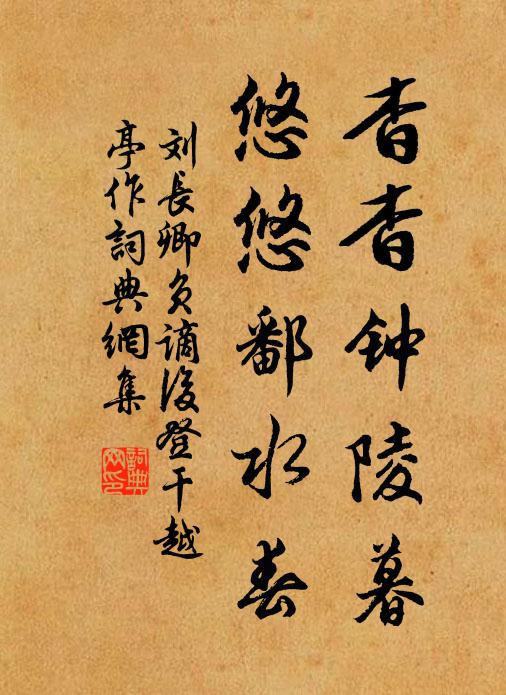 杳杳钟陵暮
悠悠鄱水春
刘長卿负謫後登干越
亭作詞典網集
詞典
网印